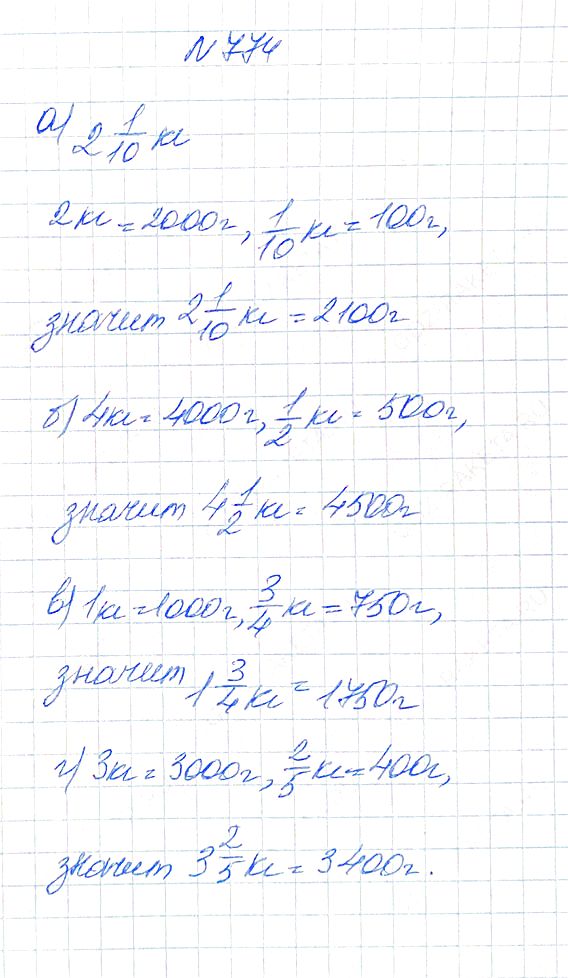 N 774
а) 2 1/10 кг
2кг = 2000г, 1/10 кг = 100г,
значит 2 1/10 кг = 2100г
б) 4кг = 4000г, 1/2 кг = 500г,
значит 4 1/2 кг = 4500г
в) 1кг = 1000г, 3/4 кг = 750г,
значит 1 3/4 кг = 1750г
г) 3кг = 3000г, 2/5 кг = 400г,
значит 3 2/5 кг = 3400г.